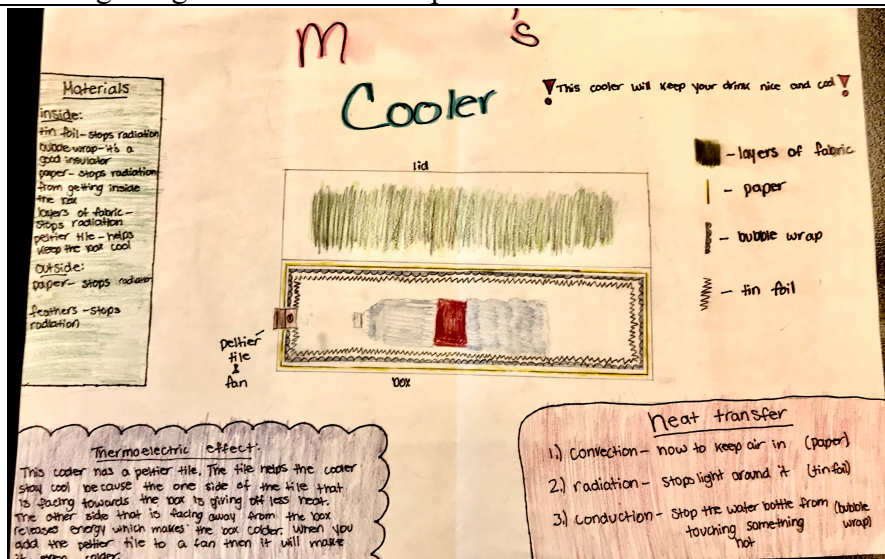 M 's
Cooler
This cooler will keep your drink nice and cool
Materials
inside:
tin foil-stops radiation
bubble wrap-it's a
good insulator
paper- stops radiation
from getting inside
the box
layers of fabric-
stops radiation
peltier tile-helps
keep the box cool
outside:
paper- stops radiation
feathers-stops
radiation
lid
peltier
tile
&
fan
box
-layers of fabric
- paper
- bubble wrap
- tin foil
Thermoelectric effect:
This cooler has a peltier tile. The tile helps the cooler
stay cool because the one side of the tile that
is facing towards the box is giving off less heat.
The other side that is facing away from the box
releases energy which makes the box colder. When you
add the peltier tile to a fan then it will make
it even colder.
heat transfer
1.) Convection- how to keep air in (paper)
2.) radiation- stops light around it (tin foil)
3.) Conduction- stop the water bottle from (bubble
touching something wrap)
hot